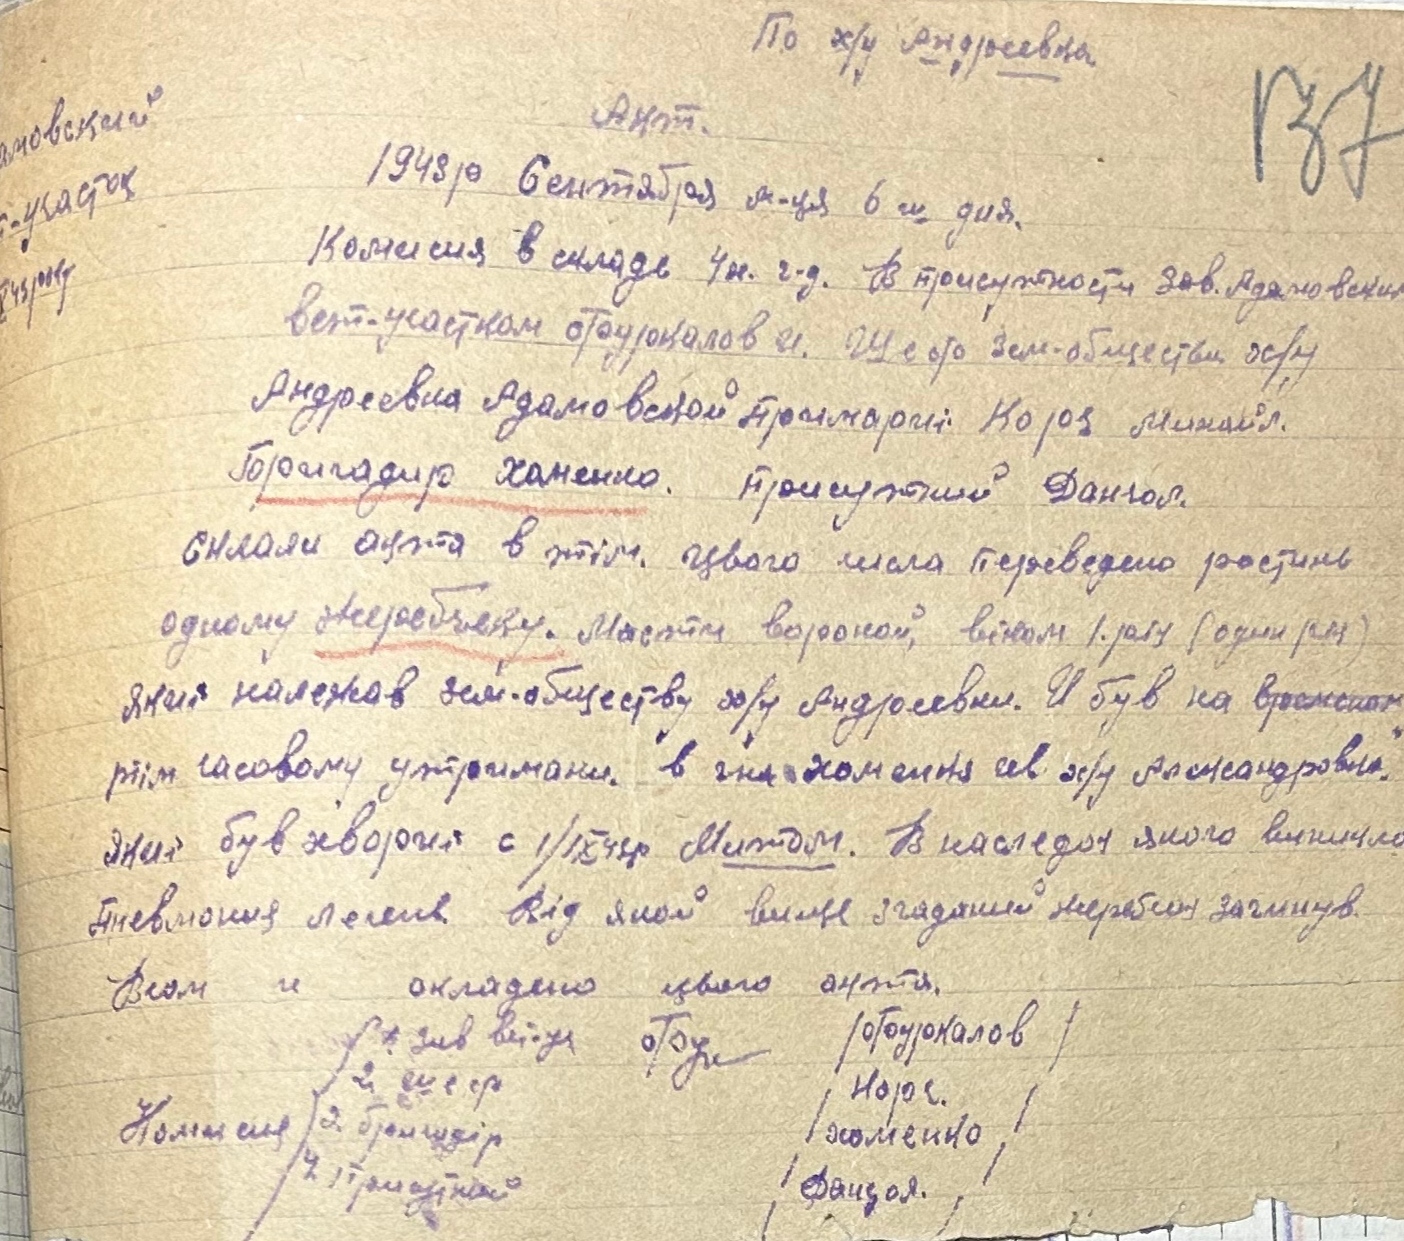 По х/у Андреевка
137
амовский
т-участок
43 року
Акт.
1943 р Сентября м-ця 6 го дня.
Комисия в складе 4х. г-д. В присутности Зав. Адамовским
вет-участком Отурналов И. Шеф Зем-общества х/у
Андреевка Адамовской примарии Корз Михайл.
Бригадир Хоменко. присутний Данчол.
Склали акта в тім. Цього числа переведено ростинь
одному жеребчеку. Масти вороной, віком 1.рік (один рік)
який належав зем-обществу х/у Андреевки. И був на
тім часовому утримани. в г-на Хоменка ів. х/у Александровка.
які був хворий с 1/IX 43р Митом. В наследок якого виникло
Пневмония легень. Від якой вище згаданий жеребчик загинув.
В чом и складено цього акта.
1. Зав вет-уч /Отурналов/
2. шеф Корз.
Комисия 3. бригадір Хоменко
4. присутний Данчол.